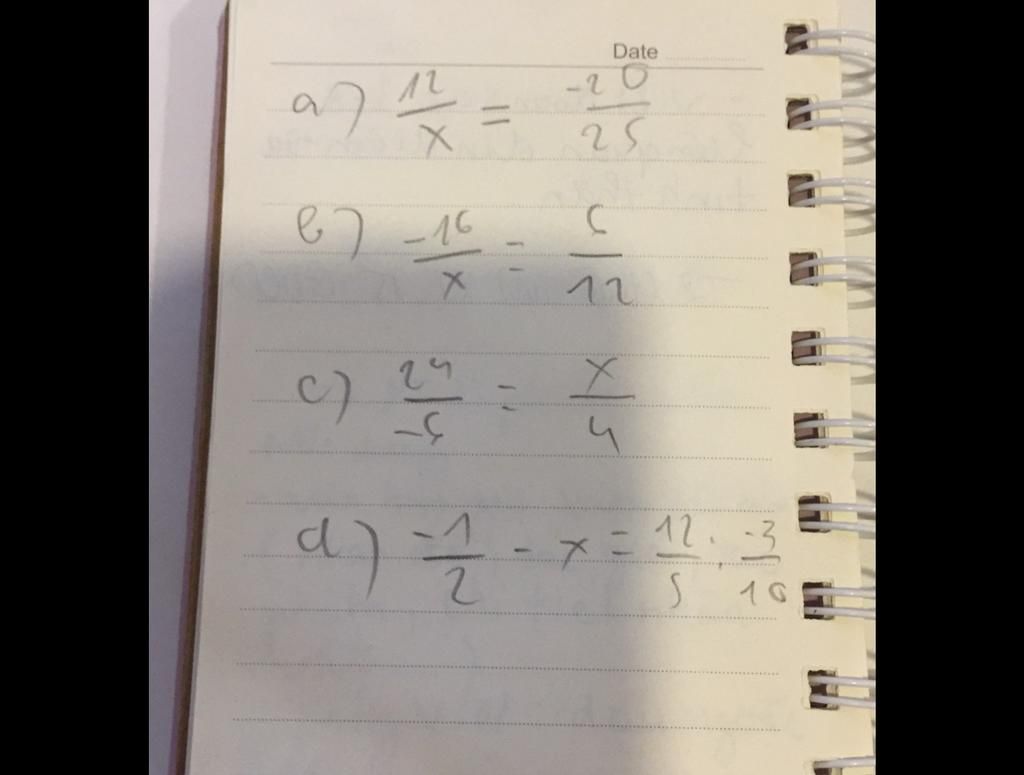 Date
a) 12/x = -20/25
b) -16/x = 6/12
c) 24/-6 = x/4
d) -1/2 - x = 12/5 : -3/10